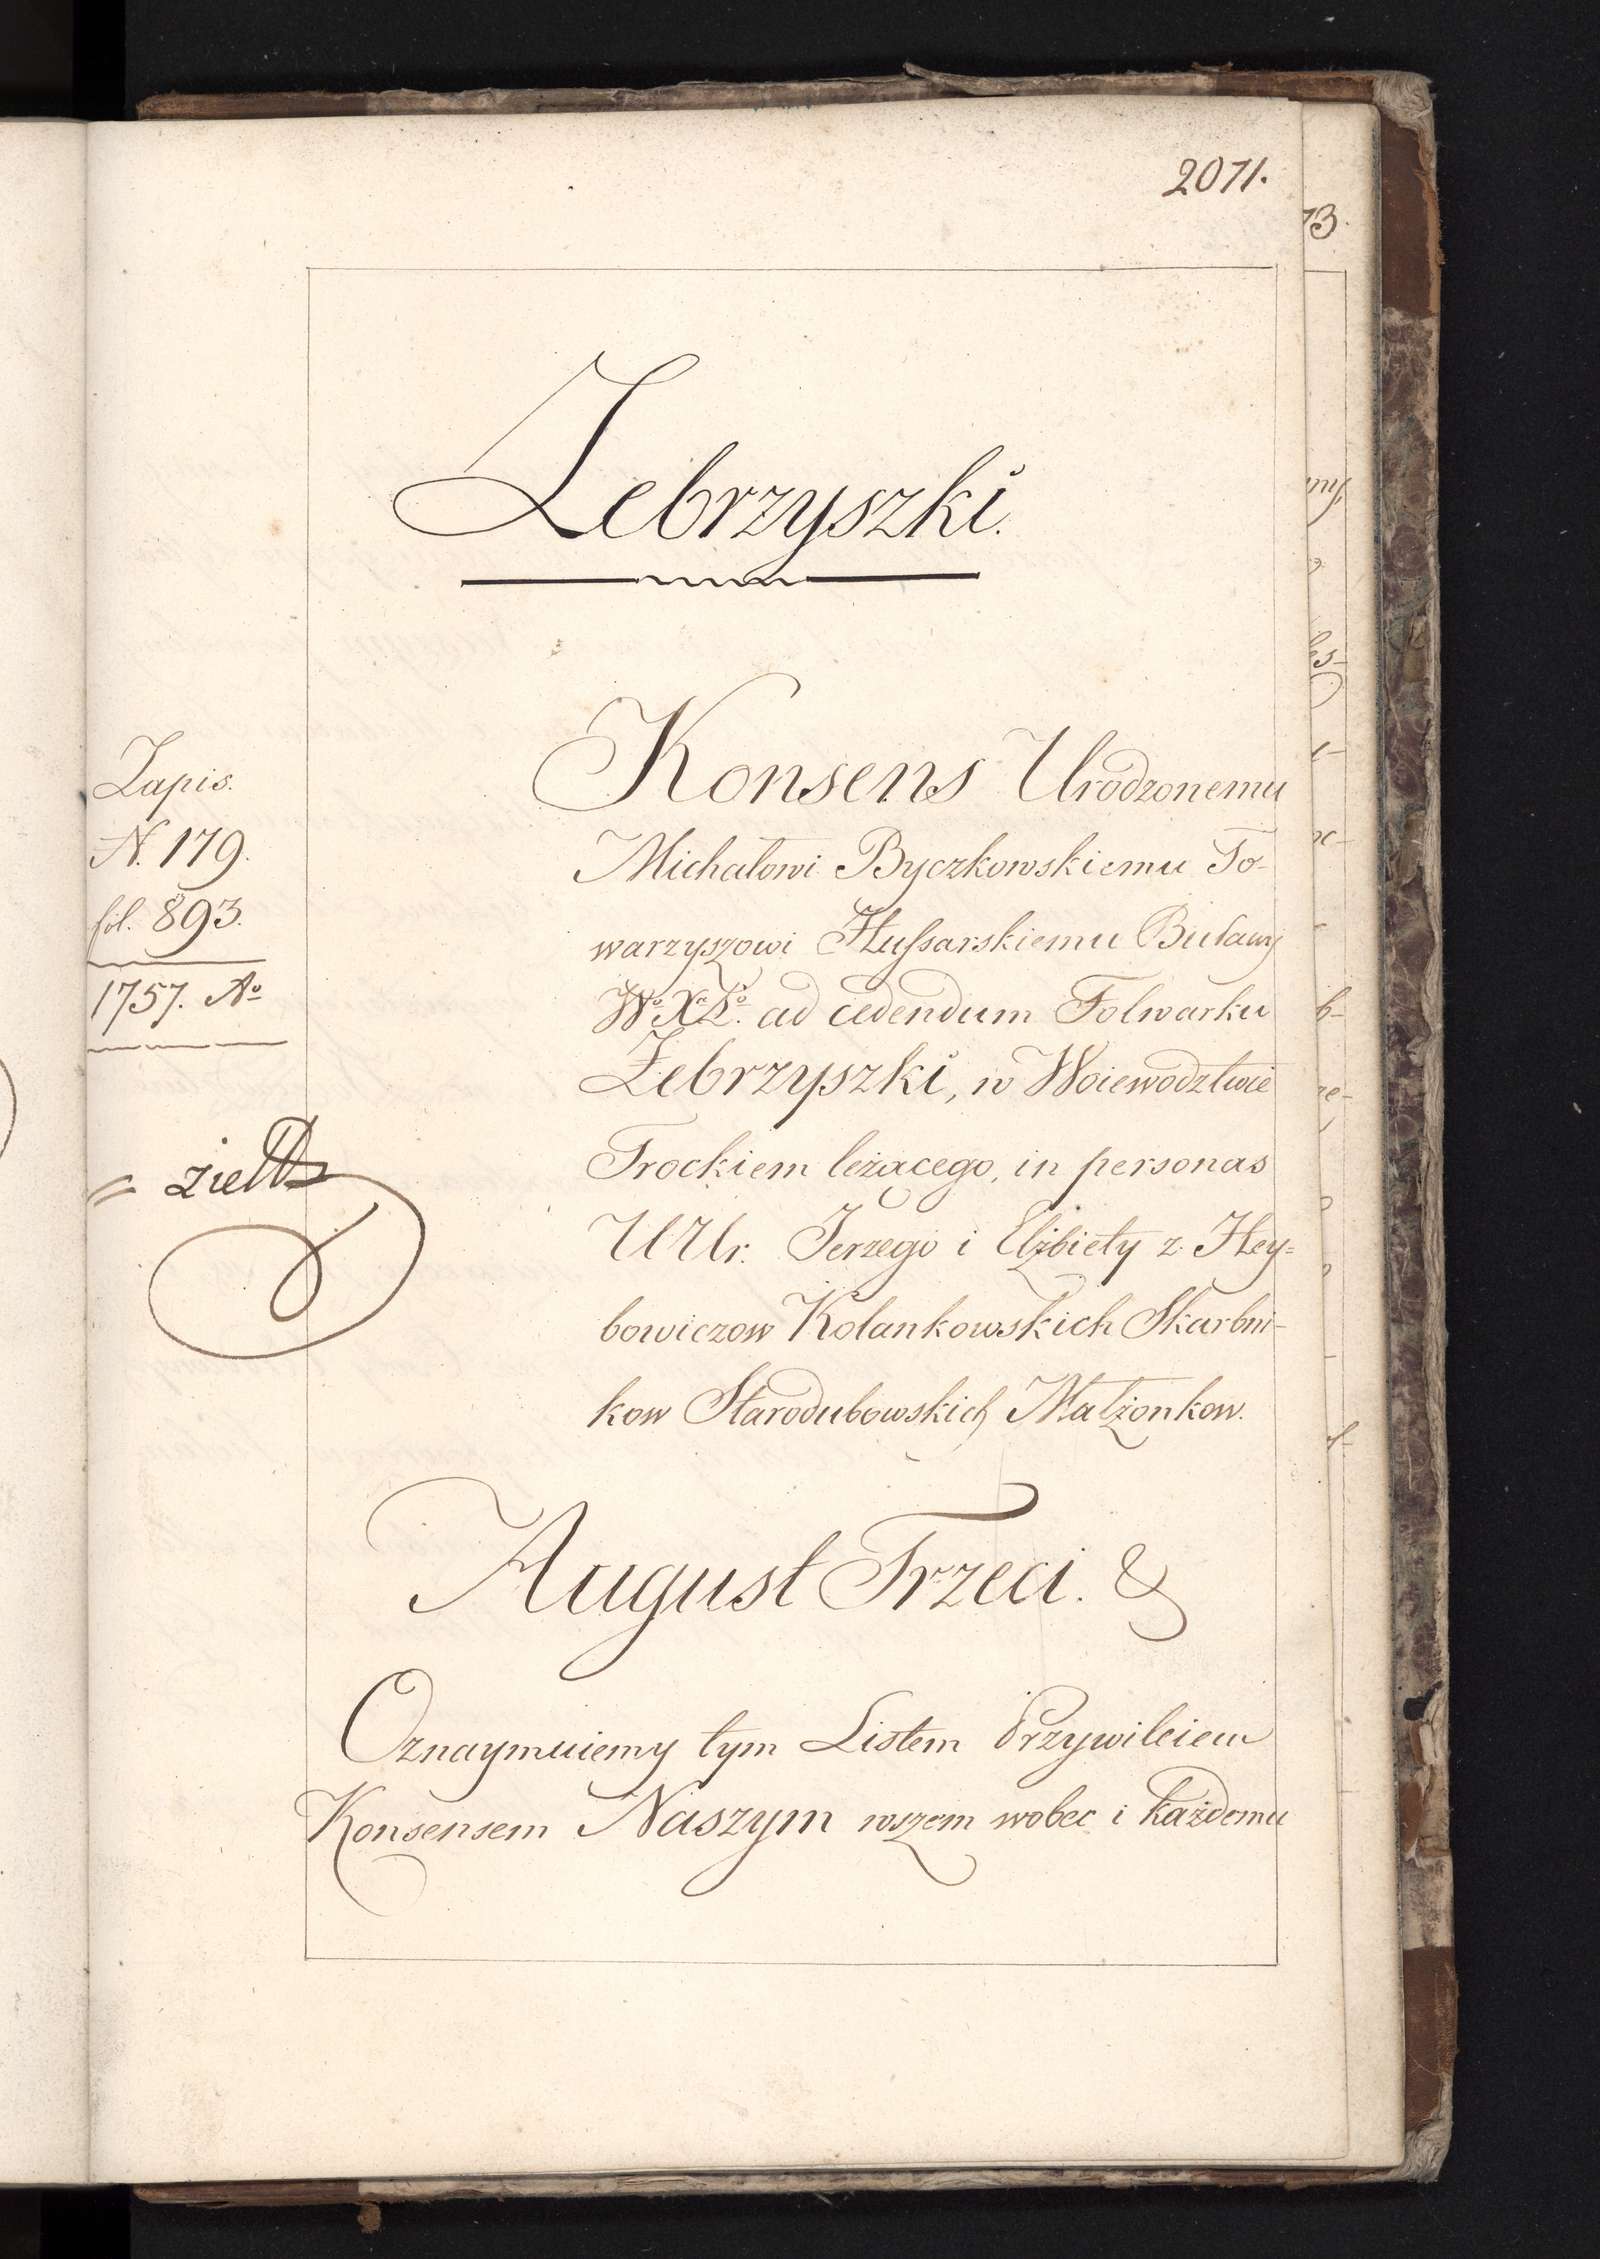 2071.
Zebrzyszki.
Zapis.
N. 179.
fol. 893.
1757. Ao
Konsens Urodzonemu
Michałowi Byczkowskiemu To-
warzyszowi Hussarskiemu Buławy
Wo Xa Lo. ad cedendum Folwarku
Zebrzyszki, w Woiewodztwie
Trockiem leżącego, in personas
UUr. Jerzego i Elżbiety z Hey=
bowiczow Kolankowskich Skarbni-
kow Starodubowskich Małżonkow.
August Trzeci. &
Oznaymuiemy tym Listem Przywileiem
Konsensem Naszym wszem wobec i każdemu